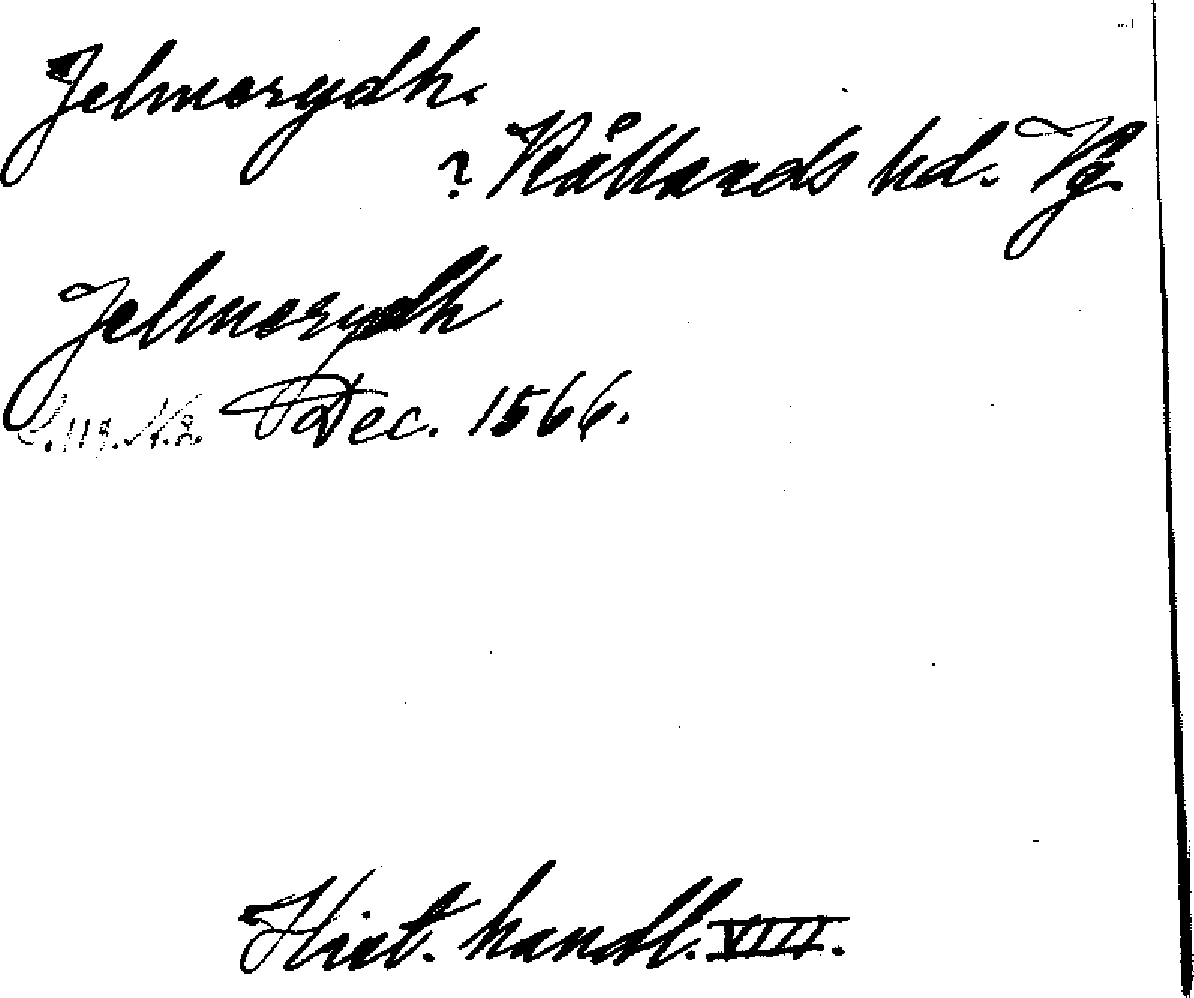 Jelmerydh.
? Kållands hd. Vg.
Jelmerydh
S. 113. N. 2. Dec. 1566.
Hist. handl. VIII.